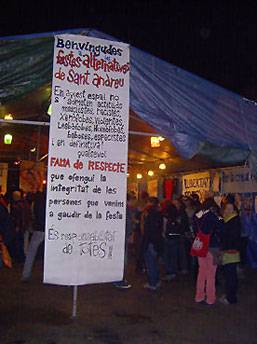 Benvingudes
festes alternatives
de Sant andreu
En aquest espai no
s'admeten actituds
masclistes, racistes,
Xenòfobes, Violentes,
Lesbòfobes, Homòfobes
Gaboses, especistes
i en definitiva
qualsevol
FALTA de RESPECTE
que ofengui la
integritat de les
persones que venim
a gaudir de la festa
És responsabilitat
de Totes!!